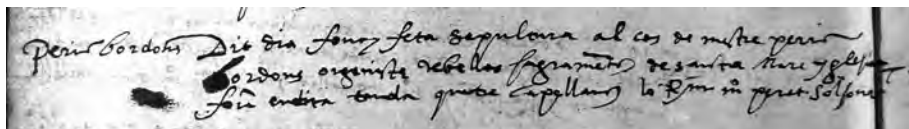 perris bordons Dit dia fonch feta sepultura al cos de mestre perris
bordons organista rebe los sagraments de santa mare yglesia
foren en dita tomba quatre capellans lo Rnt mº peret Solsona